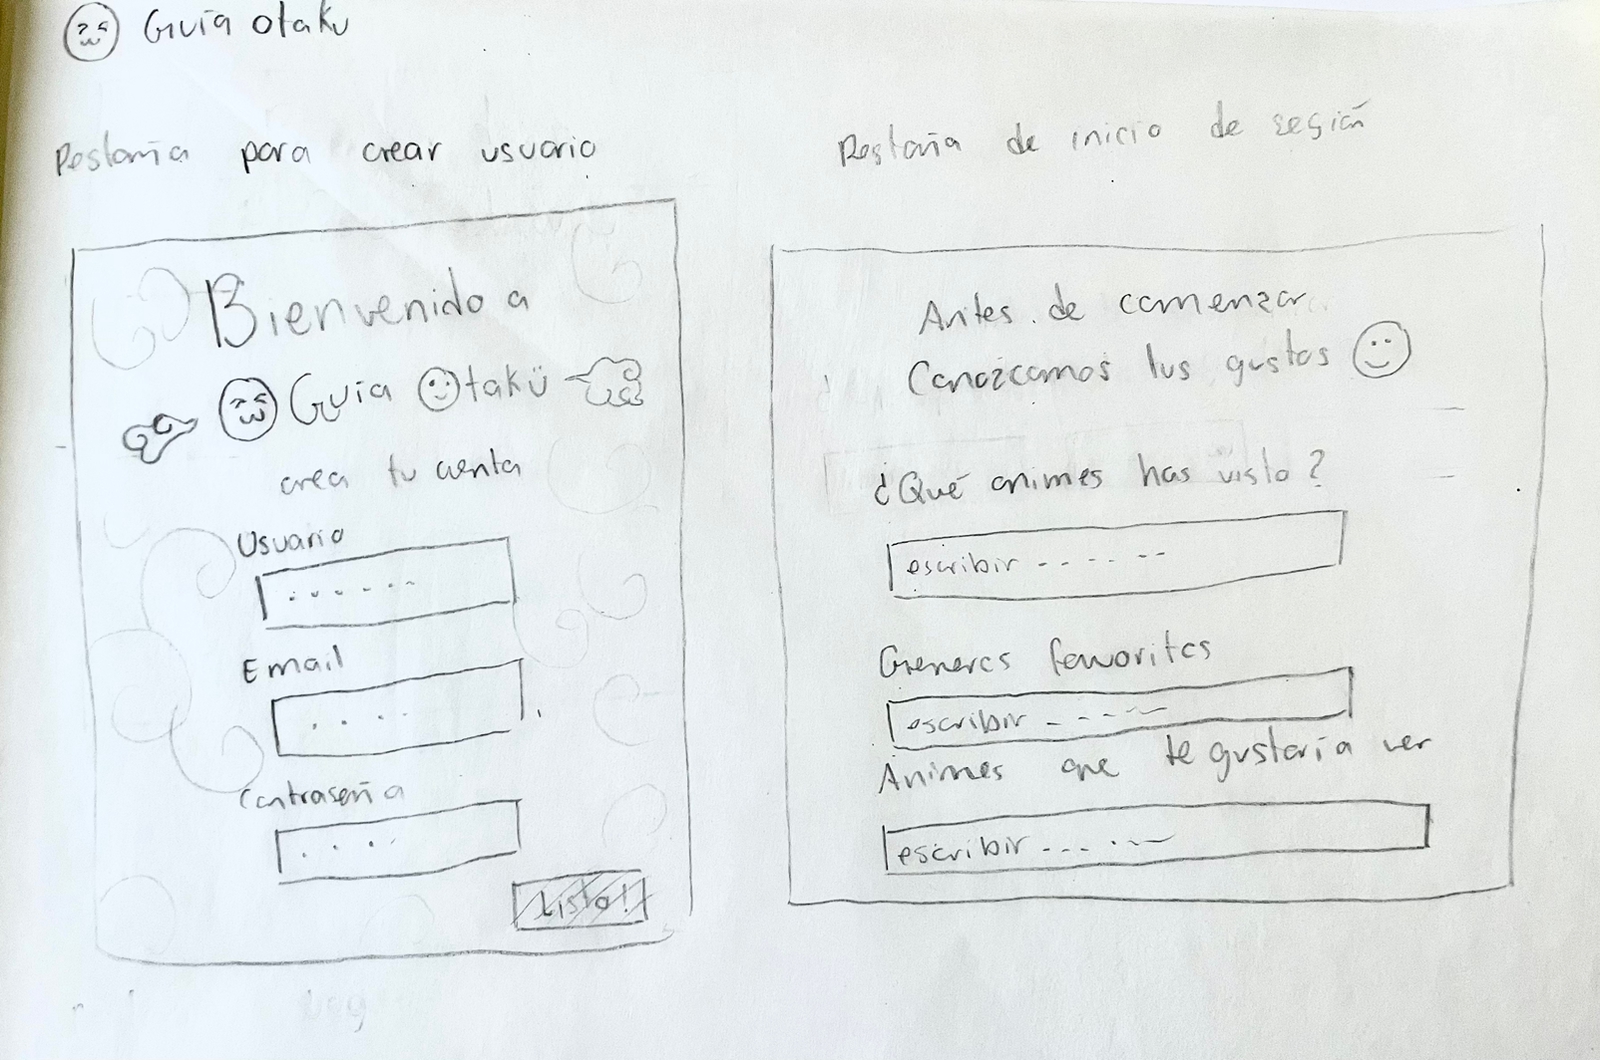 Guía otaku
Pestaña para crear usuario
Bienvenido a
Guía Otakü
crea tu cuenta
Usuario
Email
Contraseña
Listo!
Pestaña de inicio de seción
Antes de comenzar
Conozcamos tus gustos
¿Qué animes has visto?
escribir - - - - - -
Generos favoritos
escribir - - - - -
Animes que te gustaría ver
escribir - - - - -